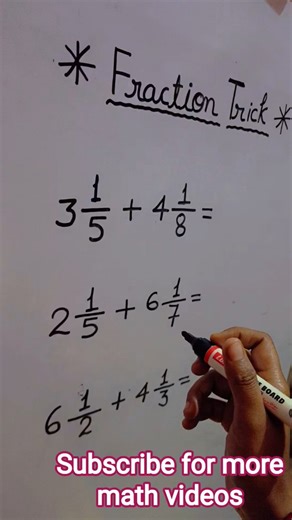 * Fraction Trick *
3 1/5 + 4 1/8 =
2 1/5 + 6 1/7 =
6 1/2 + 4 1/3 =
BOARD
Subscribe for more
math videos